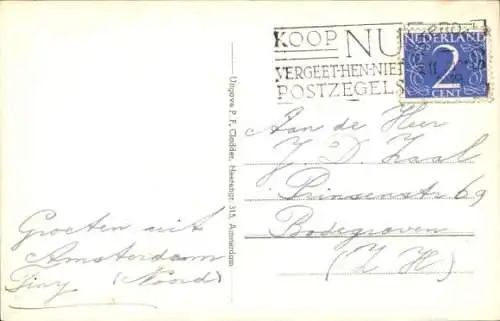 KOOP NU
VERGEET-HEN-NIET
POSTZEGELS
NEDERLAND
2
CENT
Aan de Heer
J. D. Zaal
Prinsenstr 69
Bodegraven
(Z H)
Groeten uit
Amsterdam
Tiny (Noord)
Uitgave P. F. Cladder, Heerengr. 315, Amsterdam